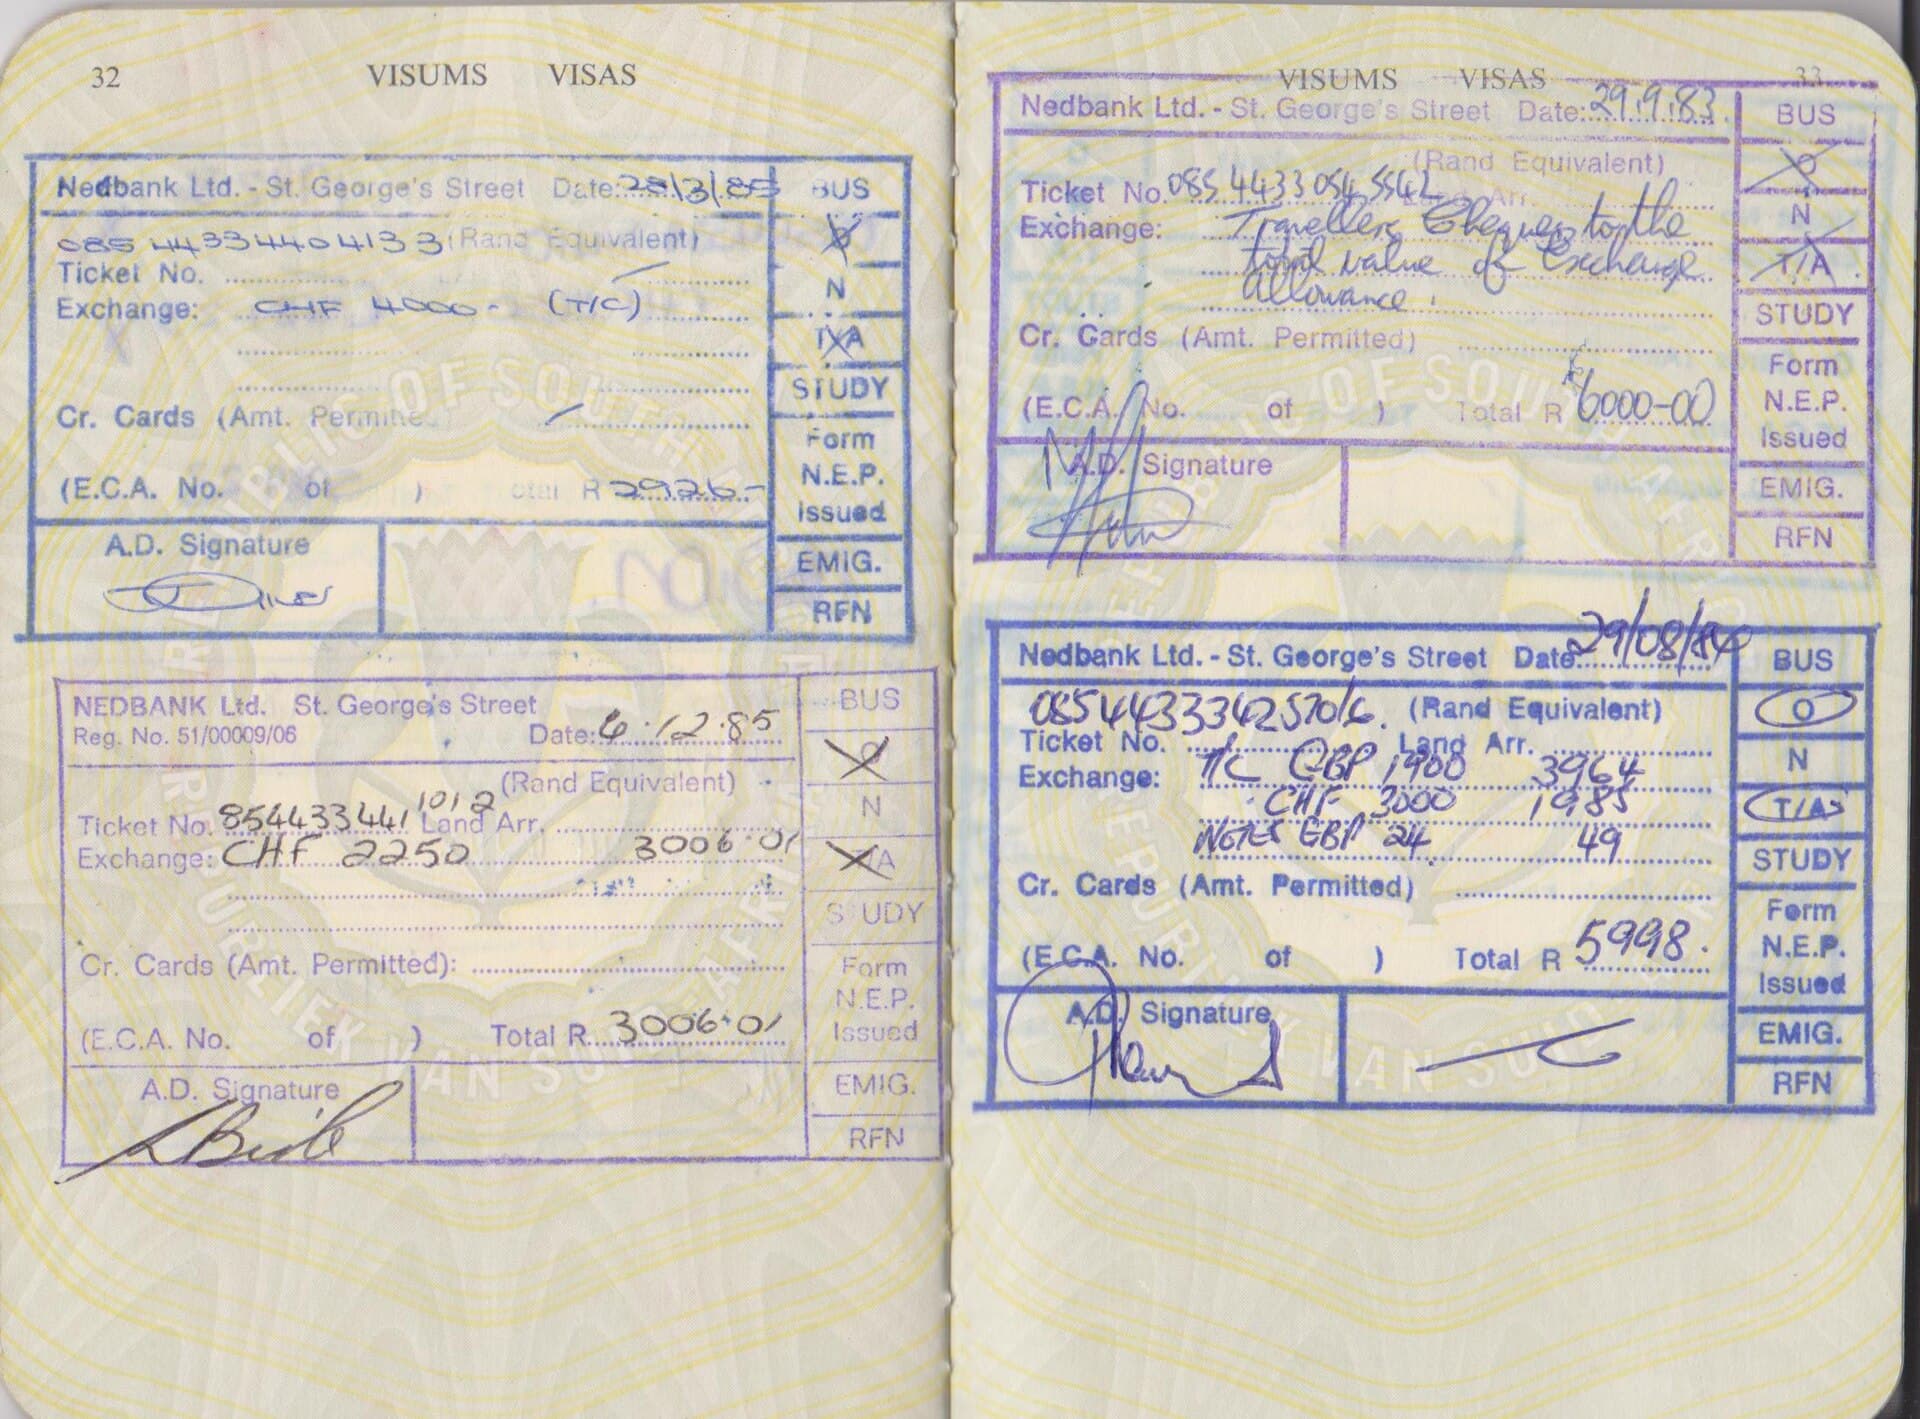 32
VISUMS VISAS
Nedbank Ltd. - St. George's Street Date: 28/3/85
BUS
O
085 44334404133 (Rand Equivalent)
Ticket No.
N
Exchange: CHF 4000- (T/C)
T/A
STUDY
Cr. Cards (Amt. Permitte
Form
N.E.P.
Issued
(E.C.A. No. of ) otal R 2926-
A.D. Signature
EMIG.
RFN
NEDBANK Ltd. St. George's Street
Reg. No. 51/00009/06 Date: 6.12.85
BUS
O
(Rand Equivalent)
N
1012
Ticket No. 854433441 Land Arr.
Exchange: CHF 2250 3006.01
T/A
S UDY
Cr. Cards (Amt. Permitted):
Form
N.E.P.
Issued
(E.C.A. No. of ) Total R. 3006.01
A.D. Signature
EMIG.
RFN
REPUBLIC OF SOUTH AFRICA
REPUBLIEK VAN SUID-AFRIKA
VISUMS VISAS
33
Nedbank Ltd. - St. George's Street Date: 29.9.83
BUS
O
(Rand Equivalent)
Ticket No. 085 4433 054 5542 Land Arr.
N
Exchange: Travellers Cheques to the
total value of Exchange
T/A
allowance.
STUDY
Cr. Cards (Amt. Permitted)
Form
N.E.P.
Issued
(E.C.A. No. of ) Total R 6000-00
A.D. Signature
EMIG.
RFN
Nedbank Ltd. - St. George's Street Date 29/08/84
BUS
(Rand Equivalent)
O
Ticket No. Land Arr.
N
Exchange: T/C GBP 1900 3964
CHF 3000 1985
T/A
NOTES GBP 24 49
STUDY
Cr. Cards (Amt. Permitted)
Form
N.E.P.
Issued
(E.C.A. No. of ) Total R 5998.
A.D. Signature
EMIG.
RFN
REPUBLIC OF SOUTH AFRICA
REPUBLIEK VAN SUID